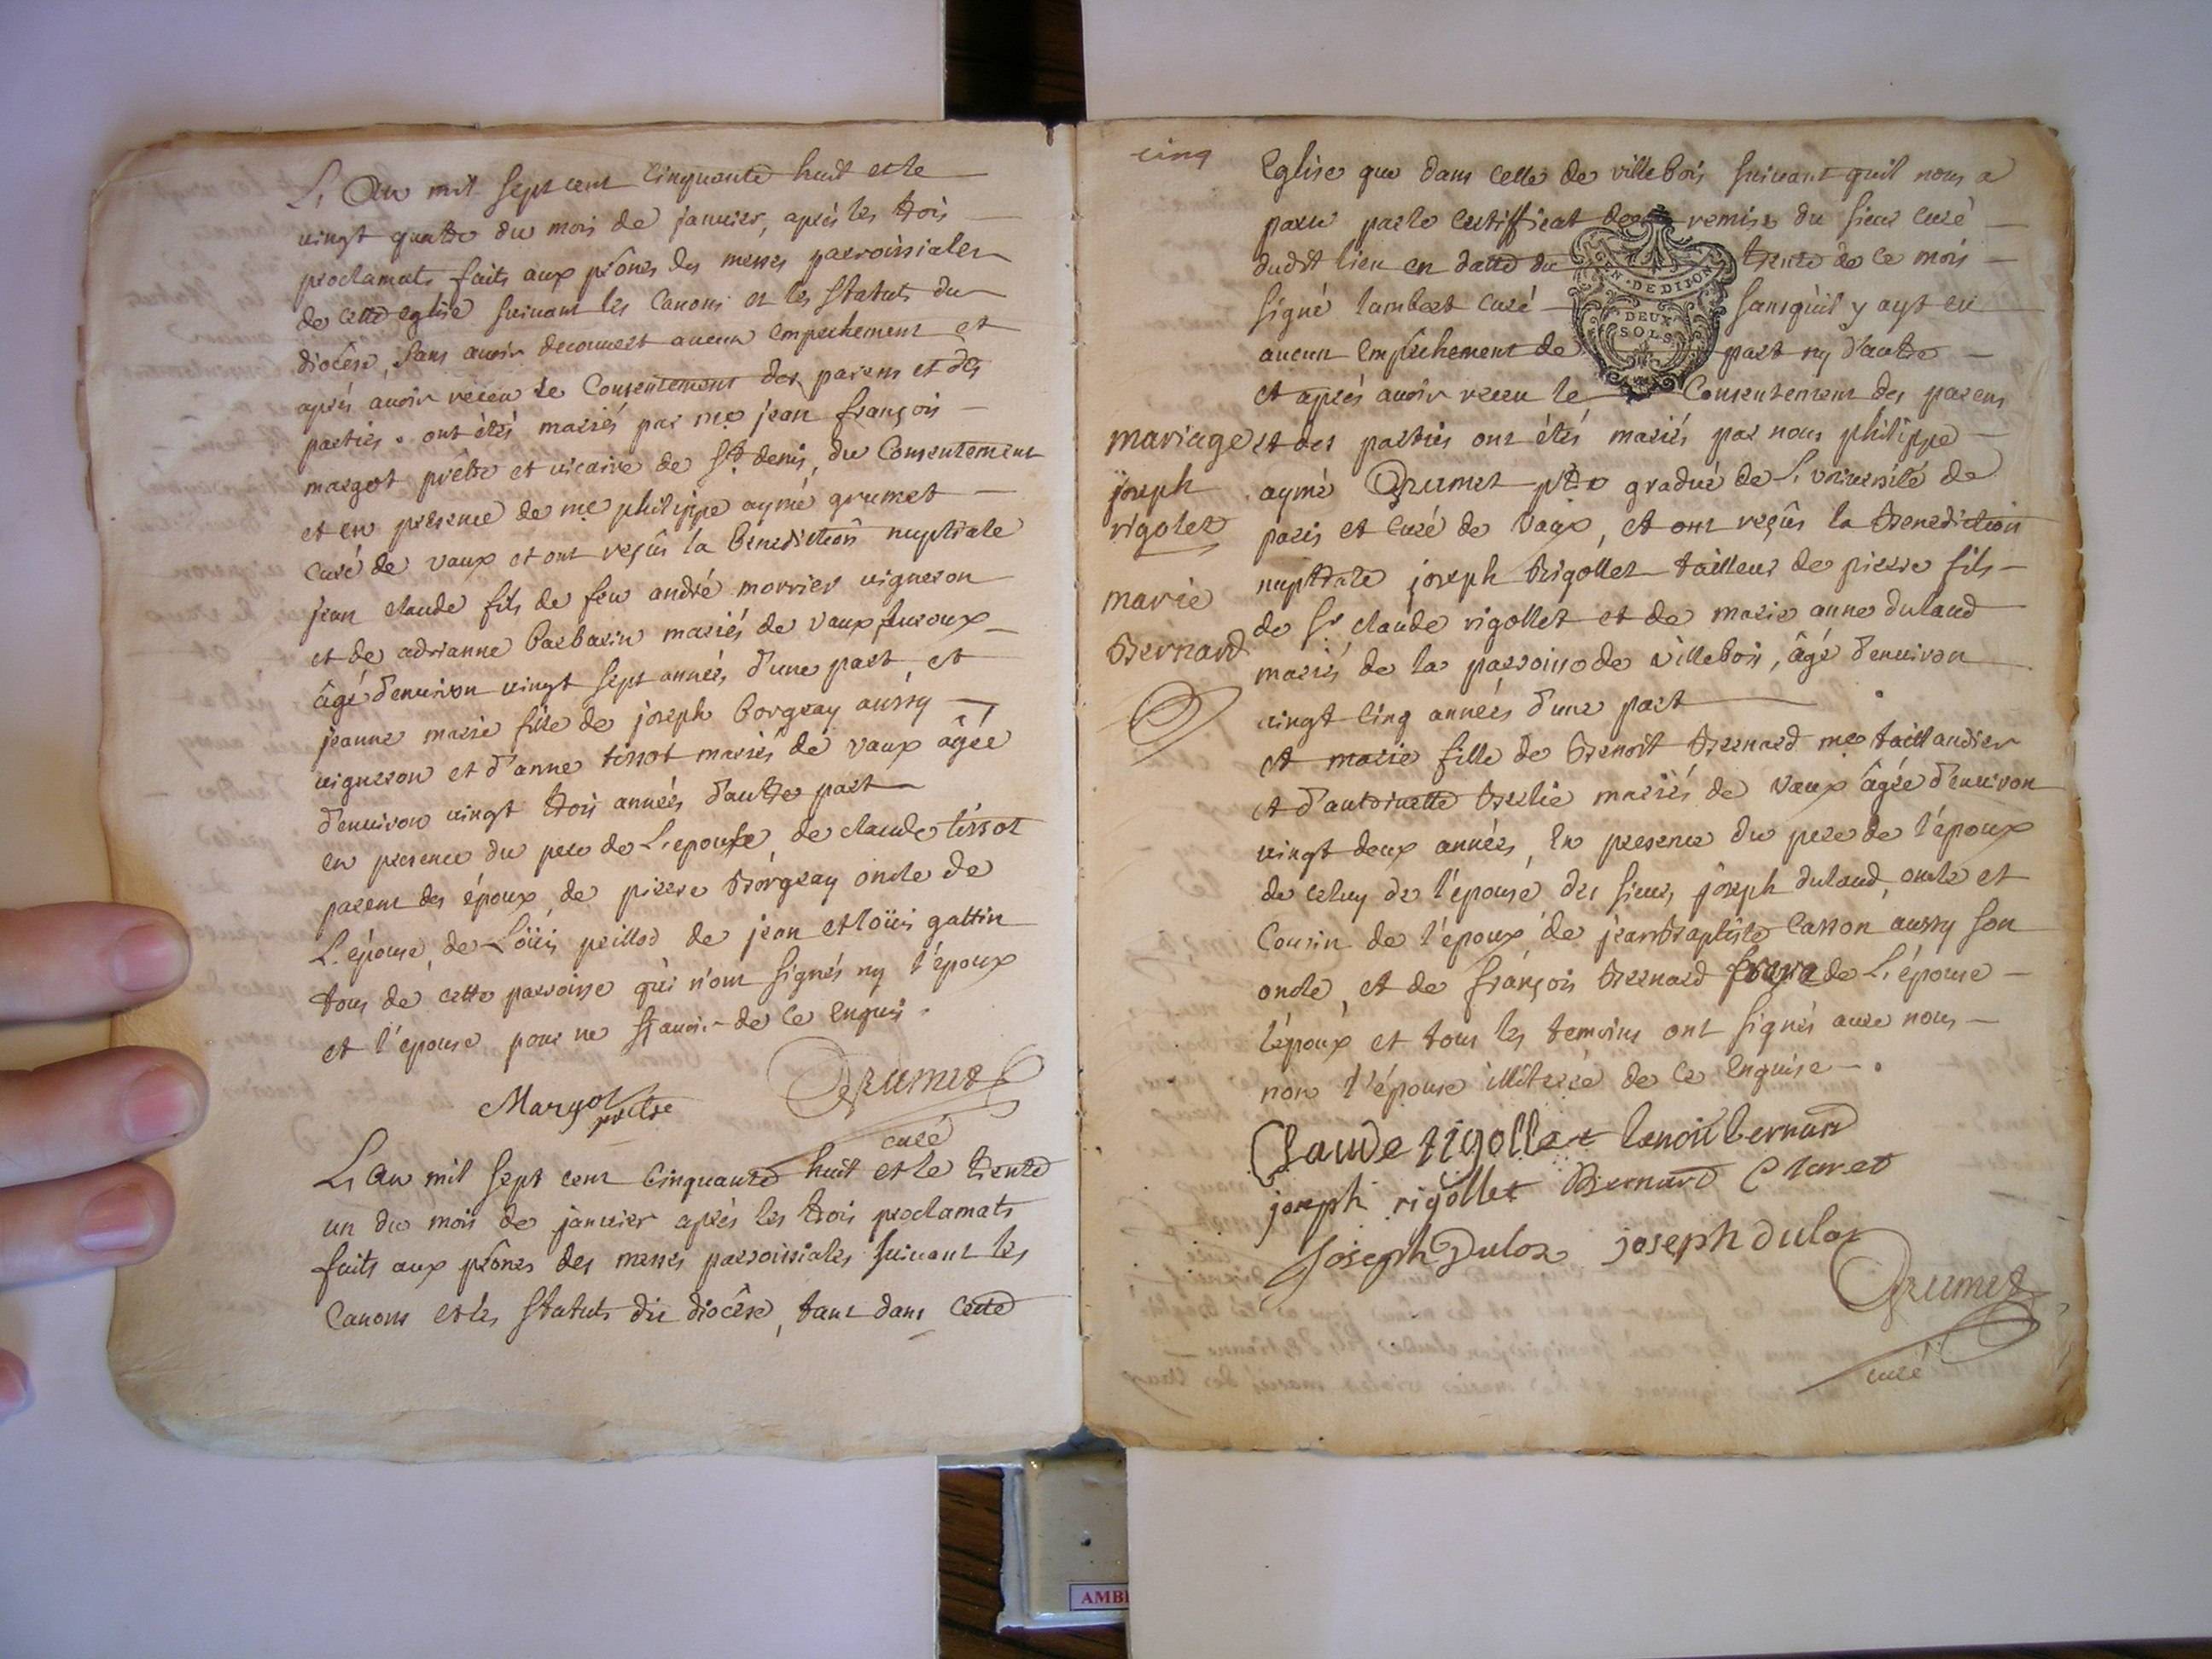 L'An mil sept cent cinquante huit et le
vingt quatre du mois de janvier, après les trois
proclamats faits aux prônes des messes parroissiales
de cette eglise suivant les Canons et les statuts du
diocèse, sans avoir decouvert aucun empechement et
après avoir receu le Consentement des parens et des
parties, ont étés mariés par me jean françois
margot prêtre et vicaire de st denis, du Consentement
et en presence de me philippe aymé grumet
curé de vaux et ont reçûs la benediction nuptiale
jean claude fils de feu andré morrier vigneron
et de adrianne barbarin mariés de vaux
âgé d'environ vingt sept années d'une part et
jeanne marie fille de joseph borgeay aussy
vigneron et d'anne tissot mariés de vaux âgée
d'environ vingt trois années d'autre part
en presence du pere de L'epouse, de claude tissot
parent des époux, de pierre Borgeay oncle de
L'épouse, de Loüis peillod de jean et loüis gattin
tous de cette parroisse qui n'ont signés ny l'époux
et l'épouse pour ne sçavoir de ce enquis.
Margot prêtre Grumet
curé
L'An mil sept cent cinquante huit et le trente
un du mois de janvier après les trois proclamats
faits aux prônes des messes parroissiales suivant les
Canons et les statuts du diocèse, tant dans cette
cinq
Eglise que dans celle de villebois suivant quil nous a
paru par le certifficat de remise du sieur curé
dudit lieu en datte du trente de ce mois
signé lambert curé sans qu'il y ayt eu
aucun empechement de part ny d'autre
et après avoir receu le Consentement des parens
et des parties ont étés mariés par nous philippe
aymé Grumet ptre gradué de L'université de
paris et curé de Vaux, et ont reçûs la Benediction
nuptiale joseph Rigollet tailleur de pierre fils
de sr claude rigollet et de marie anne dulaud
mariés de la parroisse de villebois, âgé d'environ
vingt cinq années d'une part
et marie fille de Benoit Bernard me taillandier
et d'antoinette mariés de Vaux âgée d'environ
vingt deux années, en presence du pere de l'époux
de celuy de l'épouse, des sieurs joseph dulaud, oncle et
Cousin de l'époux de jean Baptiste Casson aussy son
oncle, et de françois Bernard frere de L'épouse
l'époux et tous les temoins ont signés avec nous
non l'épouse illiterée de ce enquise.
mariage
joseph
rigolet
marie
Bernard
GEN. DE DIJON
DEUX
SOLS
Claude rigollet benoit bernard
joseph rigollet Bernard Claret
Joseph Dulor joseph dulor
Grumet
curé
AMBE